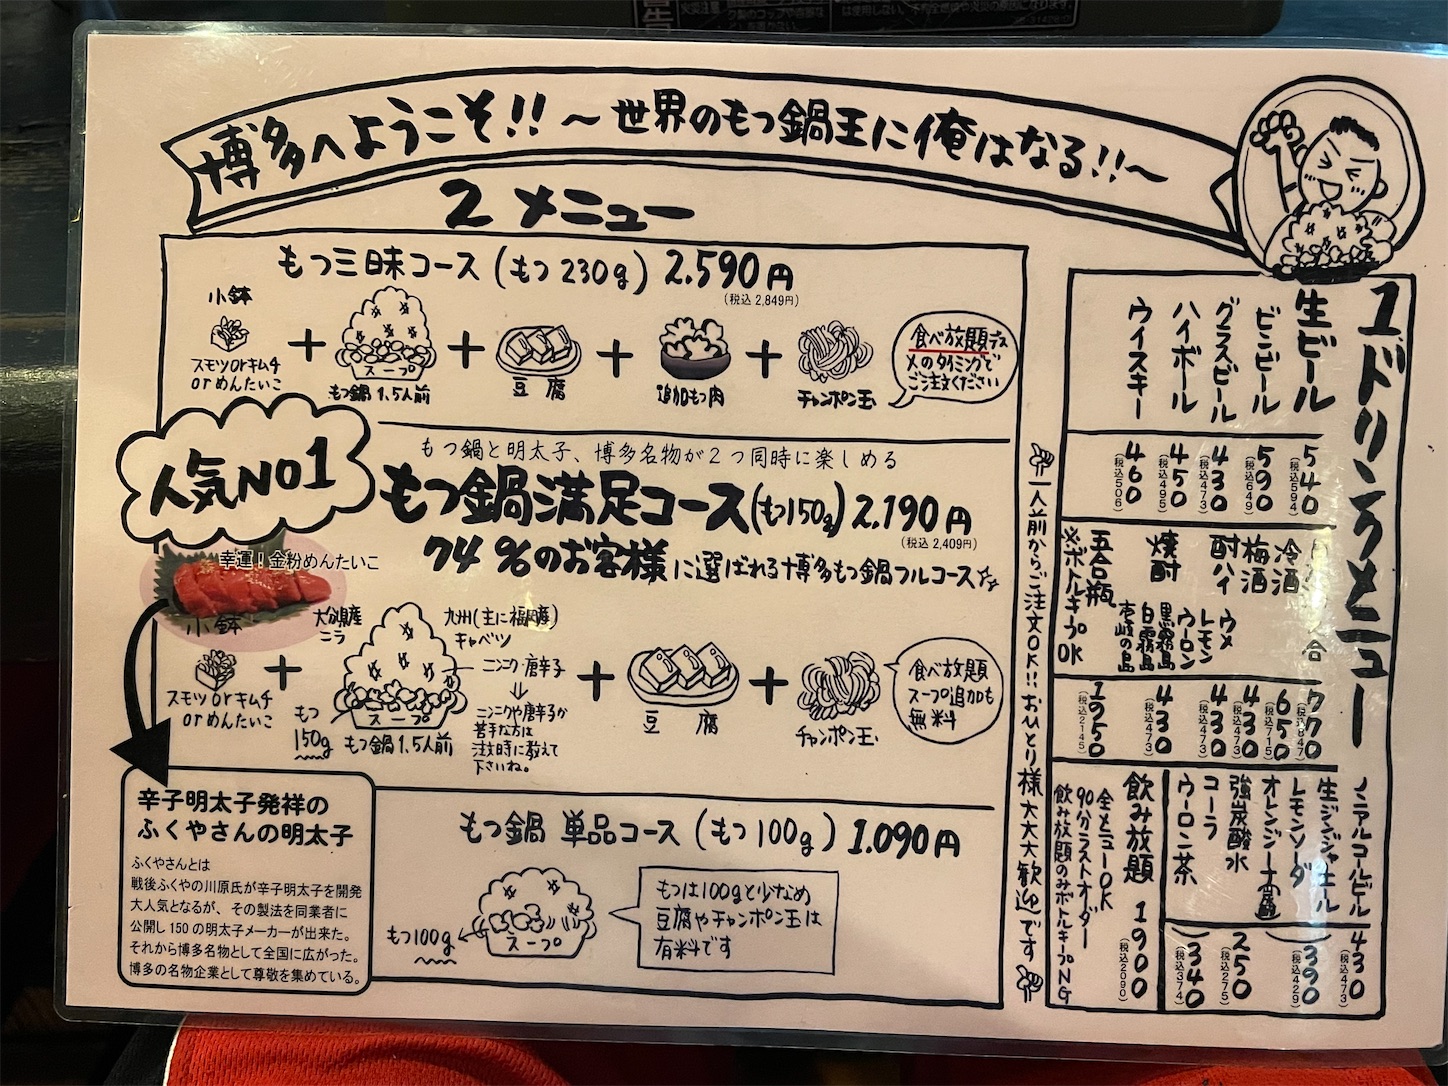 博多へようこそ!!～世界のもつ鍋王に俺はなる!!～
2メニュー
もつ三昧コース(もつ230g)2.590円
(税込 2,849円)
小鉢
スモツorキムチ
orめんたいこ
+
スープ
もつ鍋1.5人前
+
豆腐
+
追加もつ肉
+
チャンポン玉
食べ放題デス
〆のタイミングで
ご注文ください
人気NO1
もつ鍋と明太子、博多名物が2つ同時に楽しめる
もつ鍋満足コース(もつ150g)2.190円
(税込 2,409円)
74%のお客様に選ばれる博多もつ鍋フルコース
幸運！金粉めんたいこ
小鉢
スモツorキムチ
orめんたいこ
+
大分県産
ニラ
九州(主に福岡産)
キャベツ
ニンニク・唐辛子
ニンニクや唐辛子が
苦手な方は
注文時に教えて
下さいね。
もつ
150g
スープ
もつ鍋1.5人前
+
豆腐
+
チャンポン玉
食べ放題
スープ追加も
無料
辛子明太子発祥の
ふくやさんの明太子
ふくやさんとは
戦後ふくやの川原氏が辛子明太子を開発
大人気となるが、その製法を同業者に
公開し150の明太子メーカーが出来た。
それから博多名物として全国に広がった。
博多の名物企業として尊敬を集めている。
もつ鍋 単品コース(もつ100g)1.090円
もつ100g
スープ
もつは100gと少なめ
豆腐やチャンポン玉は
有料です
一人前からご注文OK!!おひとり様大大大歓迎です
1ドリンクメニュー
生ビール 540
(税込594)
ビンビール 590
(税込649)
グラスビール 430
(税込473)
ハイボール 450
(税込495)
ウイスキー 460
(税込506)
合 770
(税込847)
冷酒 650
(税込715)
梅酒 430
(税込473)
酎ハイ ウメ
レモン
ウーロン 430
(税込473)
焼酎 黒霧島
白霧島
壱岐の島 430
(税込473)
五合瓶 1950
(税込2145)
※ボトルキープOK
ノンアルコールビール 430
(税込473)
生ジンジャエール
レモンソーダ
オレンジジュース 390
(税込429)
強炭酸水 250
(税込275)
コーラ
ウーロン茶 340
(税込374)
飲み放題 1900
(税込2090)
全メニューOK
90分ラストオーダー
飲み放題のみボトルキープNG